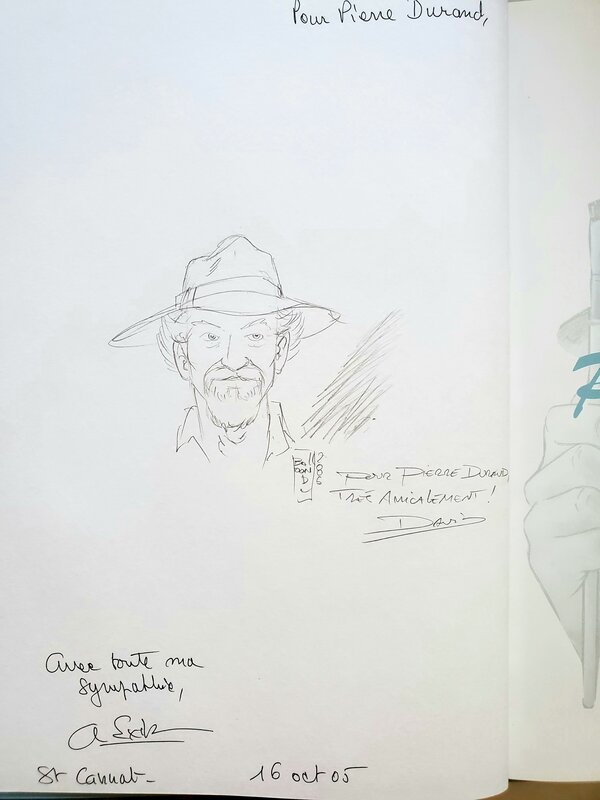 Pour Pierre Durand,
POUR PIERRE DURAND,
TRÉS AMICALEMENT !
DAVID
Avec toute ma
sympathie,
St Cannat-
16 oct 05